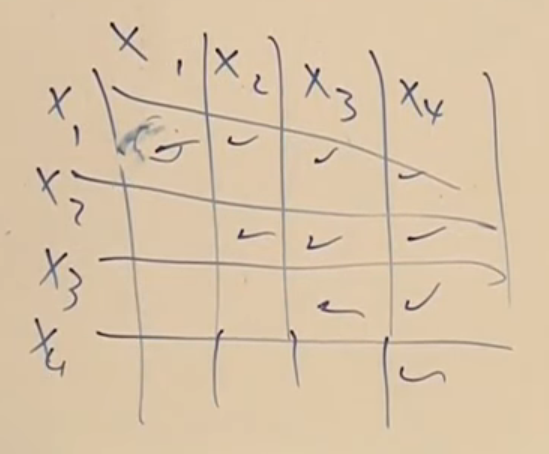 X₁ X₂ X₃ X₄
X₁ ✓ ✓ ✓ ✓
X₂ ✓ ✓ ✓
X₃ ✓ ✓
X₄ ✓